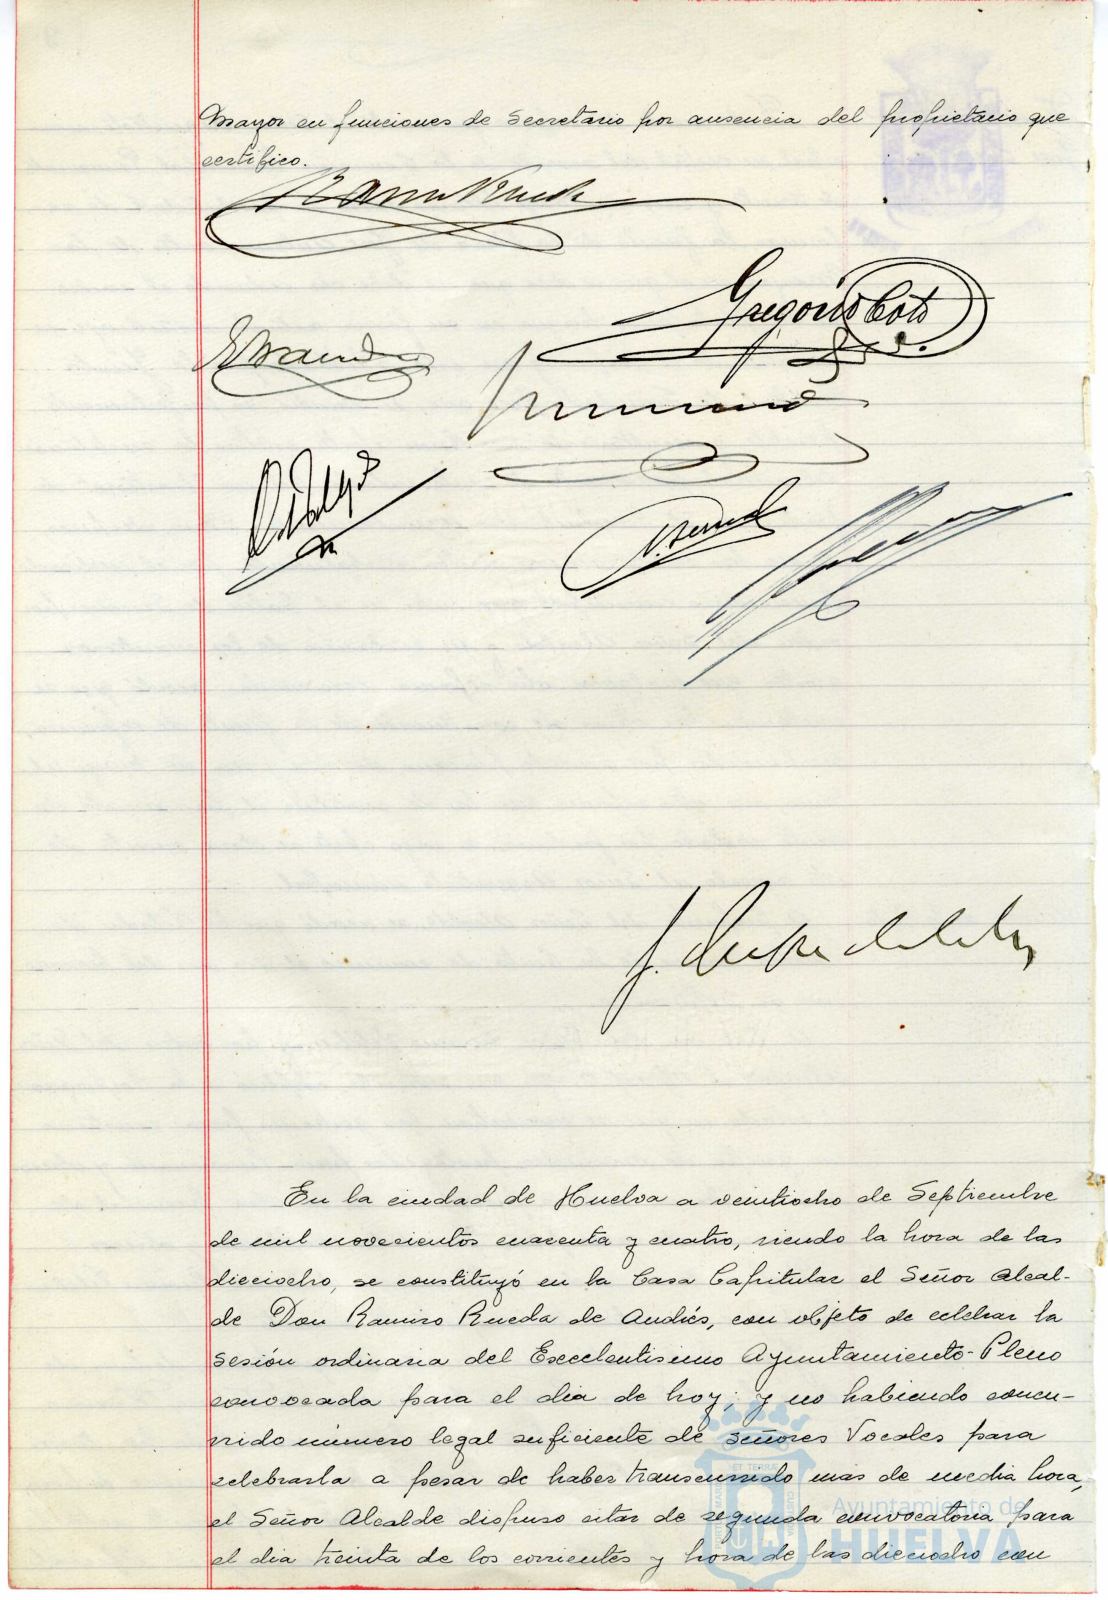 Mayor en funciones de Secretario por ausencia del propietario que
certifico.
Gregorio Coto
Hidalgo
En la ciudad de Huelva a veintiocho de Septiembre
de mil novecientos cuarenta y cuatro, siendo la hora de las
dieciocho, se constituyó en la Casa Capitular el Señor Alcal-
de Don Ramiro Rueda de Andrés, con objeto de celebrar la
sesión ordinaria del Excelentísimo Ayuntamiento-Pleno
convocada para el dia de hoy; y no habiendo concu-
rrido número legal suficiente de señores Vocales para
celebrarla a pesar de haber transcurrido más de media hora,
el Señor Alcalde dispuso citar de segunda convocatoria para
el dia treinta de los corrientes y hora de las dieciocho con
Ayuntamiento de
HUELVA